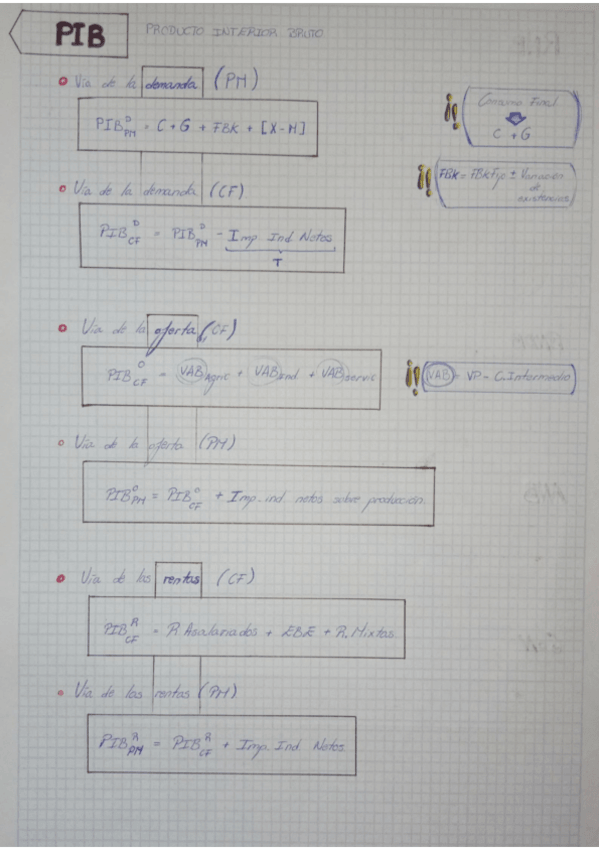 PIB PRODUCTO INTERIOR BRUTO
Vía de la demanda (PM)
PIB D PM = C + G + FBK + [X - M]
¡! Consumo Final
C + G
¡! FBK = FBKFijo ± Variación
de
existencias
Vía de la demanda (CF)
PIB D CF = PIB D PM - Imp Ind. Netos
T
Vía de la oferta (CF)
PIB O CF = VAB Agric + VAB Ind + VAB servis
¡! VAB = VP - C.Intermedio
Vía de la oferta (PM)
PIB O PM = PIB O CF + Imp. ind netos sobre producción.
Vía de las rentas (CF)
PIB R CF = R Asalariados + EBE + R. Mixtas
Vía de las rentas (PM)
PIB R PM = PIB R CF + Imp. Ind Netos